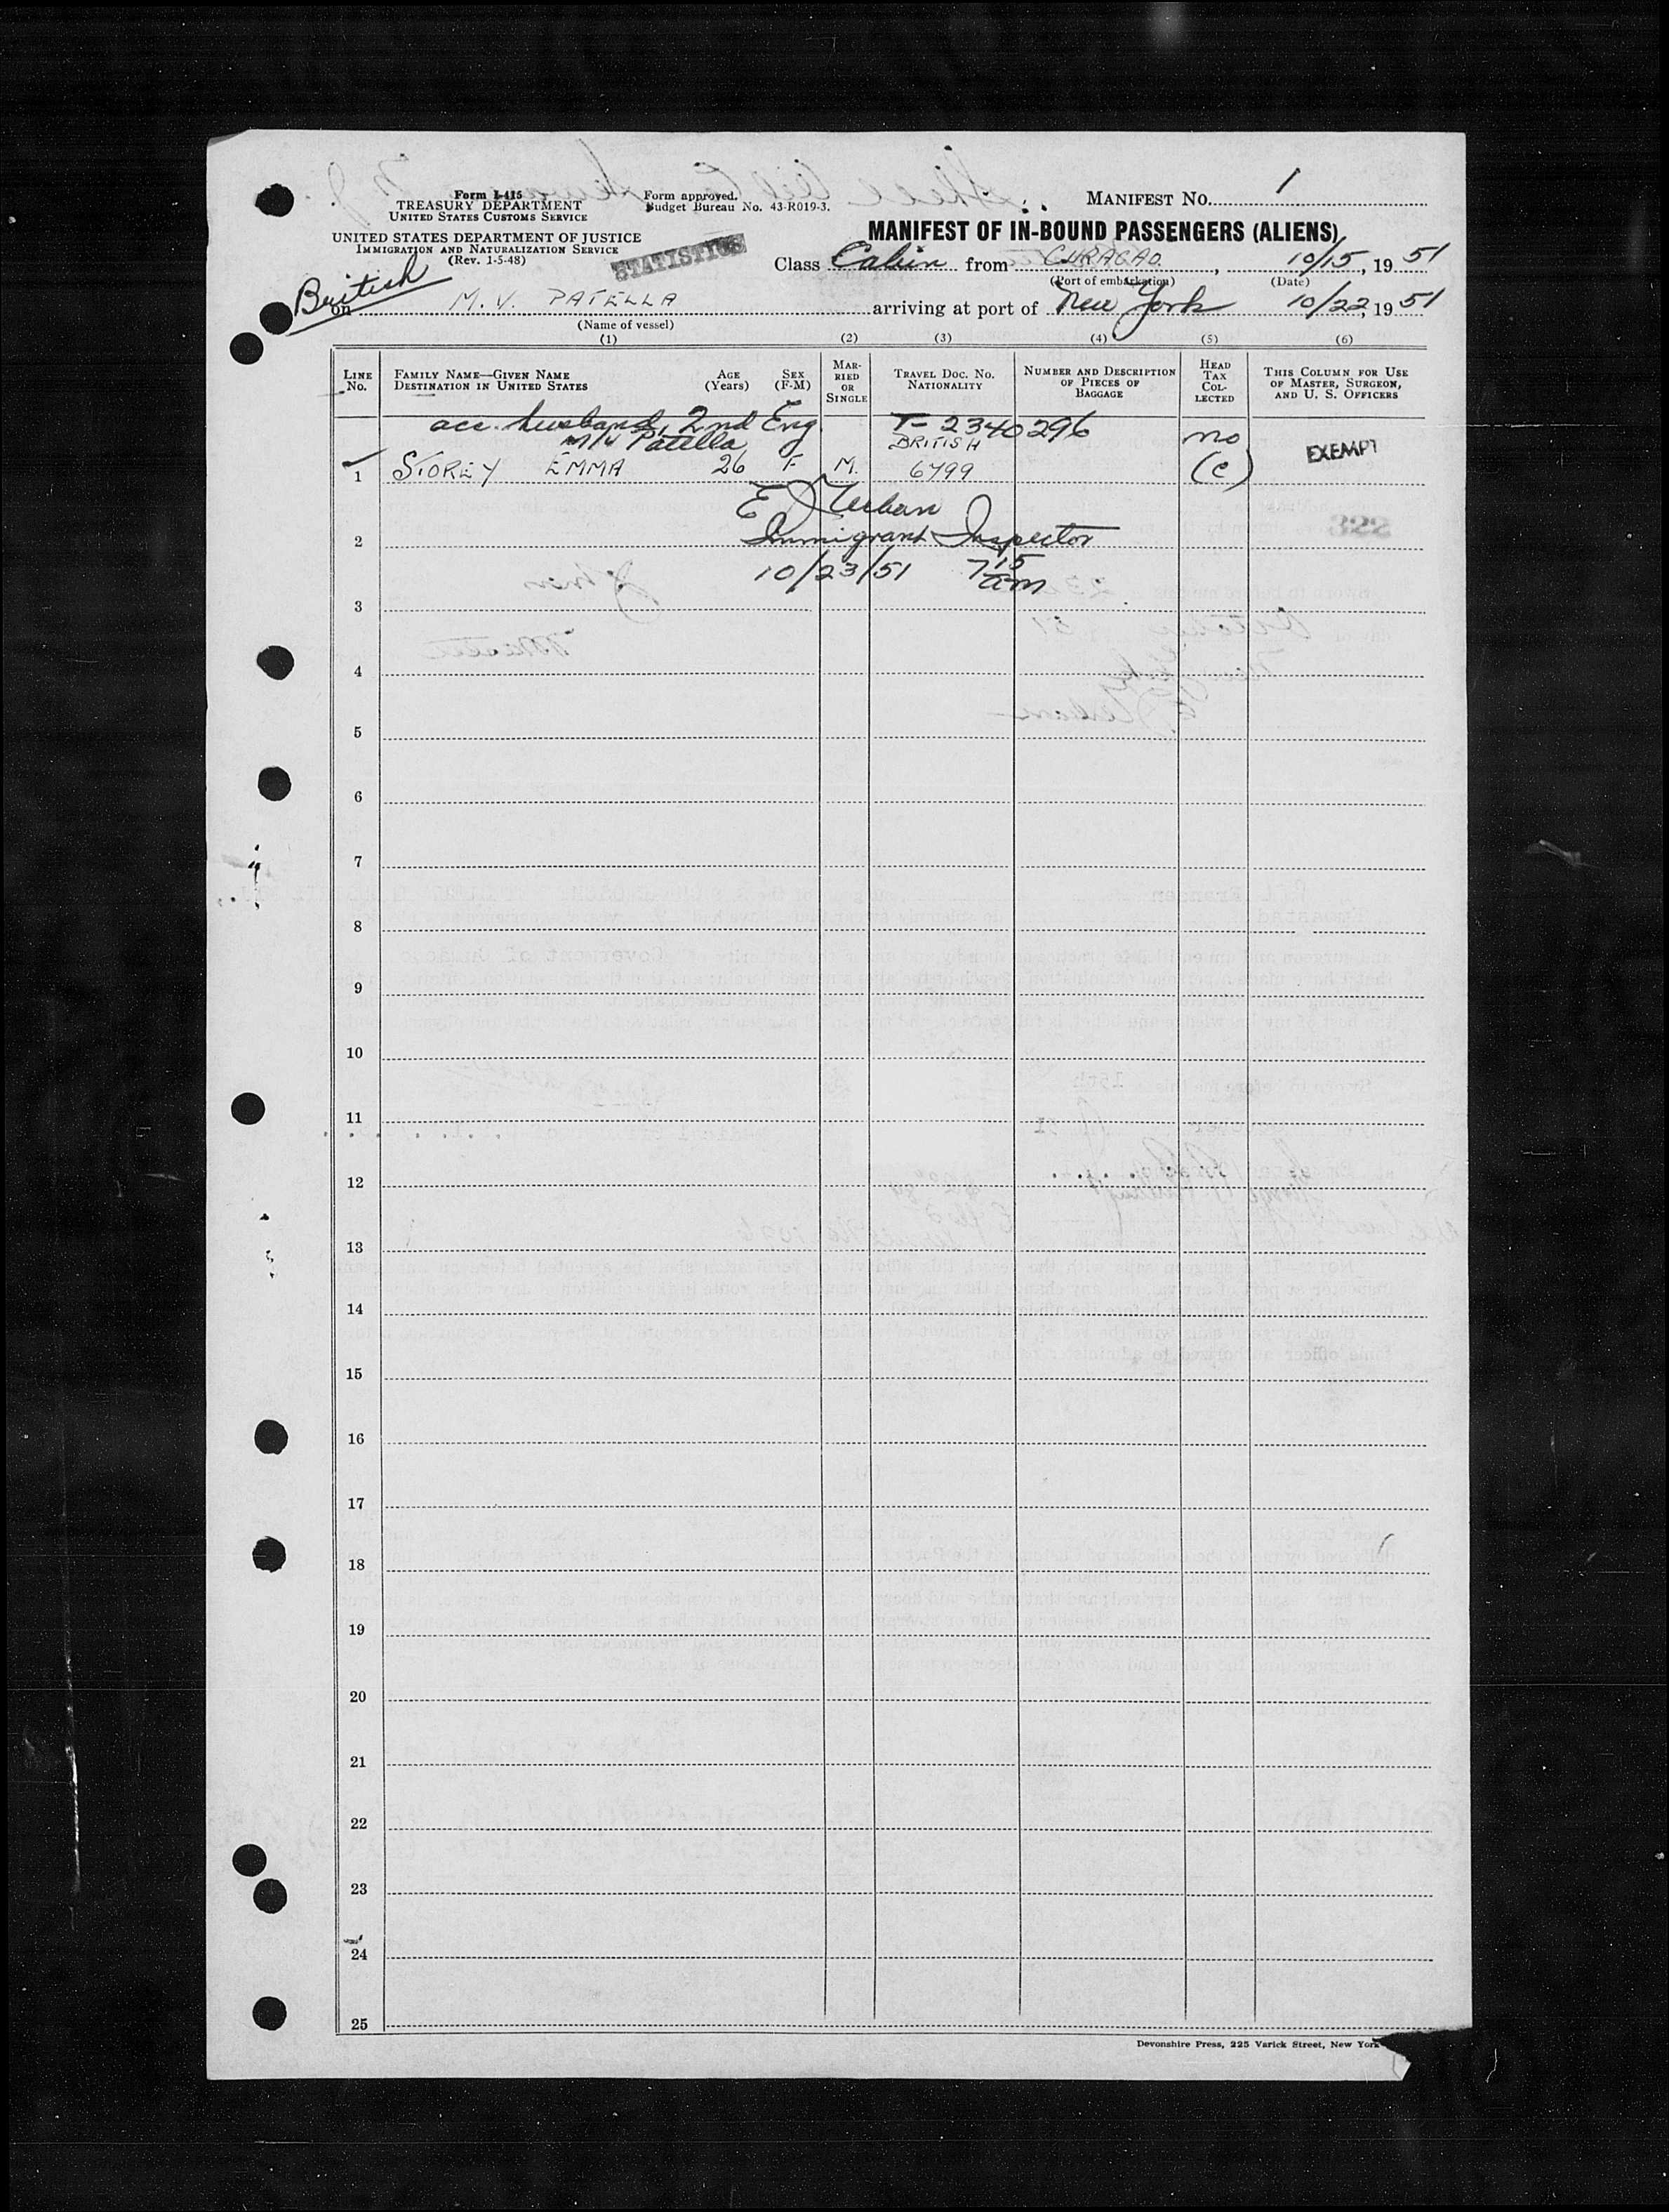 Form I-415
TREASURY DEPARTMENT
UNITED STATES CUSTOMS SERVICE
UNITED STATES DEPARTMENT OF JUSTICE
IMMIGRATION AND NATURALIZATION SERVICE
(Rev. 1-5-48)
Form approved.
Budget Bureau No. 43-R019-3.
STATISTICS
MANIFEST NO. 1
MANIFEST OF IN-BOUND PASSENGERS (ALIENS)
Class Cabin from CURACAO, 10/15, 19 51
(Port of embarkation) (Date)
British
on M.V. PATELLA arriving at port of New York 10/22, 19 51
(Name of vessel)
(1) (2) (3) (4) (5) (6)
LINE NO. FAMILY NAME—GIVEN NAME DESTINATION IN UNITED STATES AGE (Years) SEX (F-M) MARRIED OR SINGLE TRAVEL DOC. NO. NATIONALITY NUMBER AND DESCRIPTION OF PIECES OF BAGGAGE HEAD TAX COLLECTED THIS COLUMN FOR USE OF MASTER, SURGEON, AND U. S. OFFICERS
acc. husband, 2nd Eng T-2340296
M/V Patella BRITISH no EXEMPT
1 STOREY EMMA 26 F M. 6799 (c)
E J Urban
2 Immigrant Inspector
10/23/51 7 15 am
3
4
5
6
7
8
9
10
11
12
13
14
15
16
17
18
19
20
21
22
23
24
25
Devonshire Press, 225 Varick Street, New York